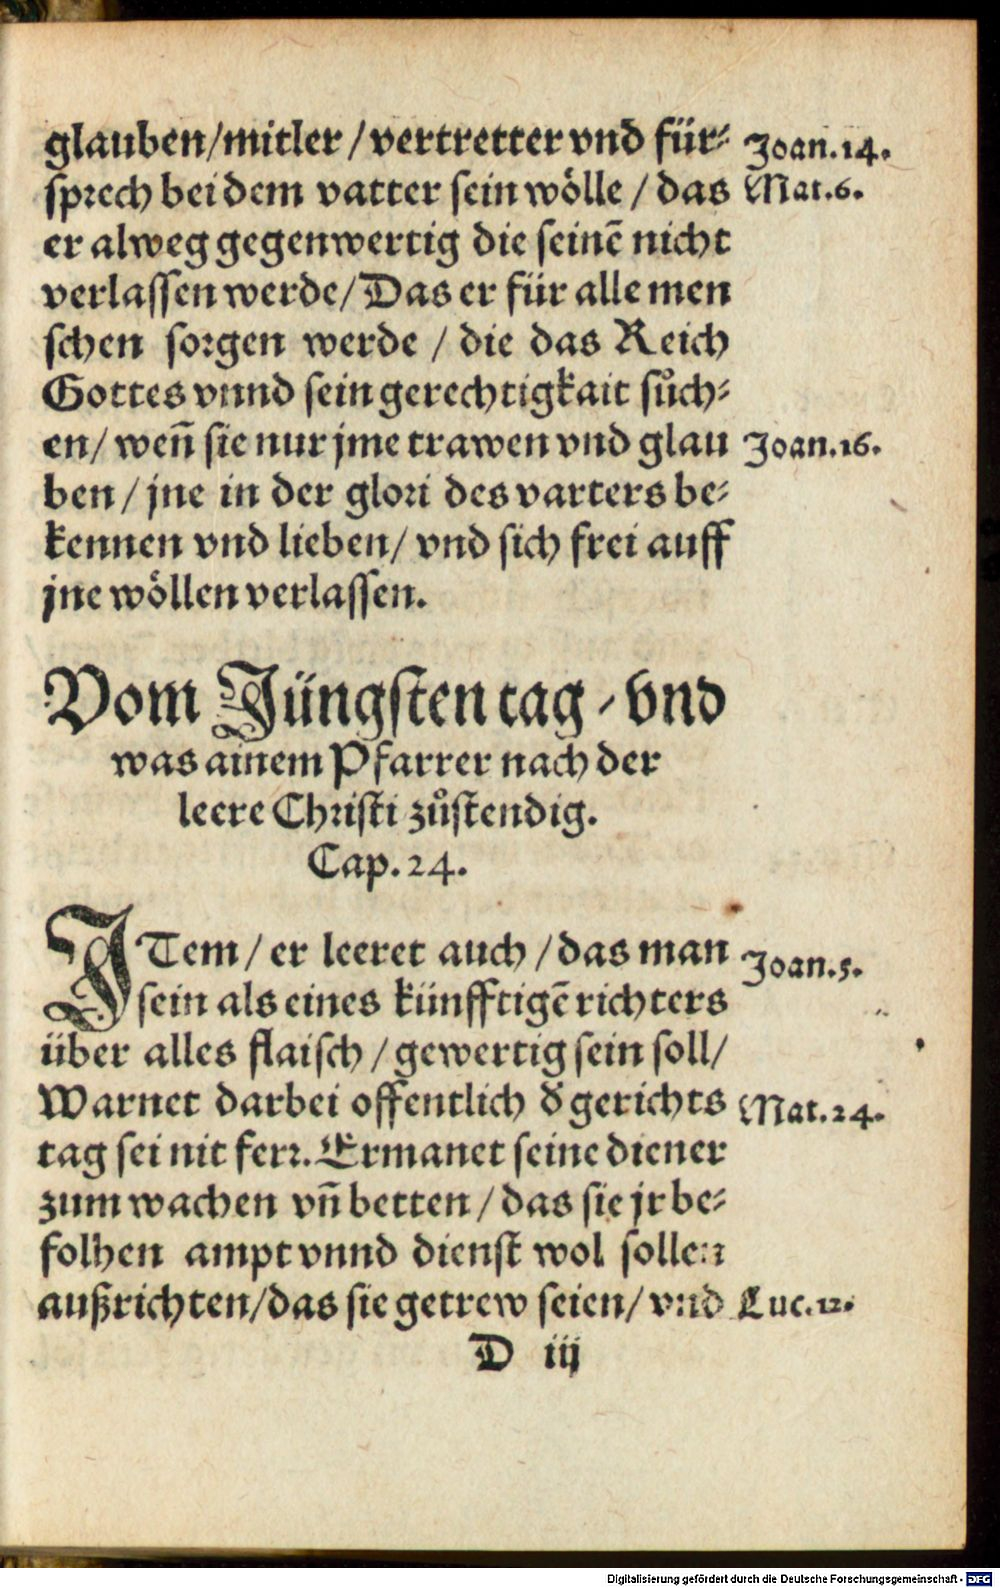 glauben/mitler / vertretter vnd für⸗ Joan.14.
sprech bei dem vatter sein wölle / das Mat.6.
er alweg gegenwertig die seinē nicht
verlassen werde/Das er für alle men
schen sorgen werde / die das Reich
Gottes vnnd sein gerechtigkait sůch⸗
en/ weñ sie nur jme trawen vnd glau Joan.16.
ben/ jne in der glori des vatters be⸗
kennen vnd lieben/ vnd sich frei auff
jne wöllen verlassen.
Vom Jüngsten tag / vnd
was ainem Pfarrer nach der
leere Christi zůstendig.
Cap. 24.
ITem/ er leeret auch / das man Joan.5.
sein als eines künfftigē richters
über alles flaisch / gewertig sein soll/
Warnet darbei offentlich d̕ gerichts Mat.24.
tag sei nit ferr. Ermanet seine diener
zum wachen vñ betten / das sie jr be⸗
folhen ampt vnnd dienst wol sollen
außrichten/das sie getrew seien/ vnd Luc.12.
D iij
Digitalisierung gefördert durch die Deutsche Forschungsgemeinschaft - DFG